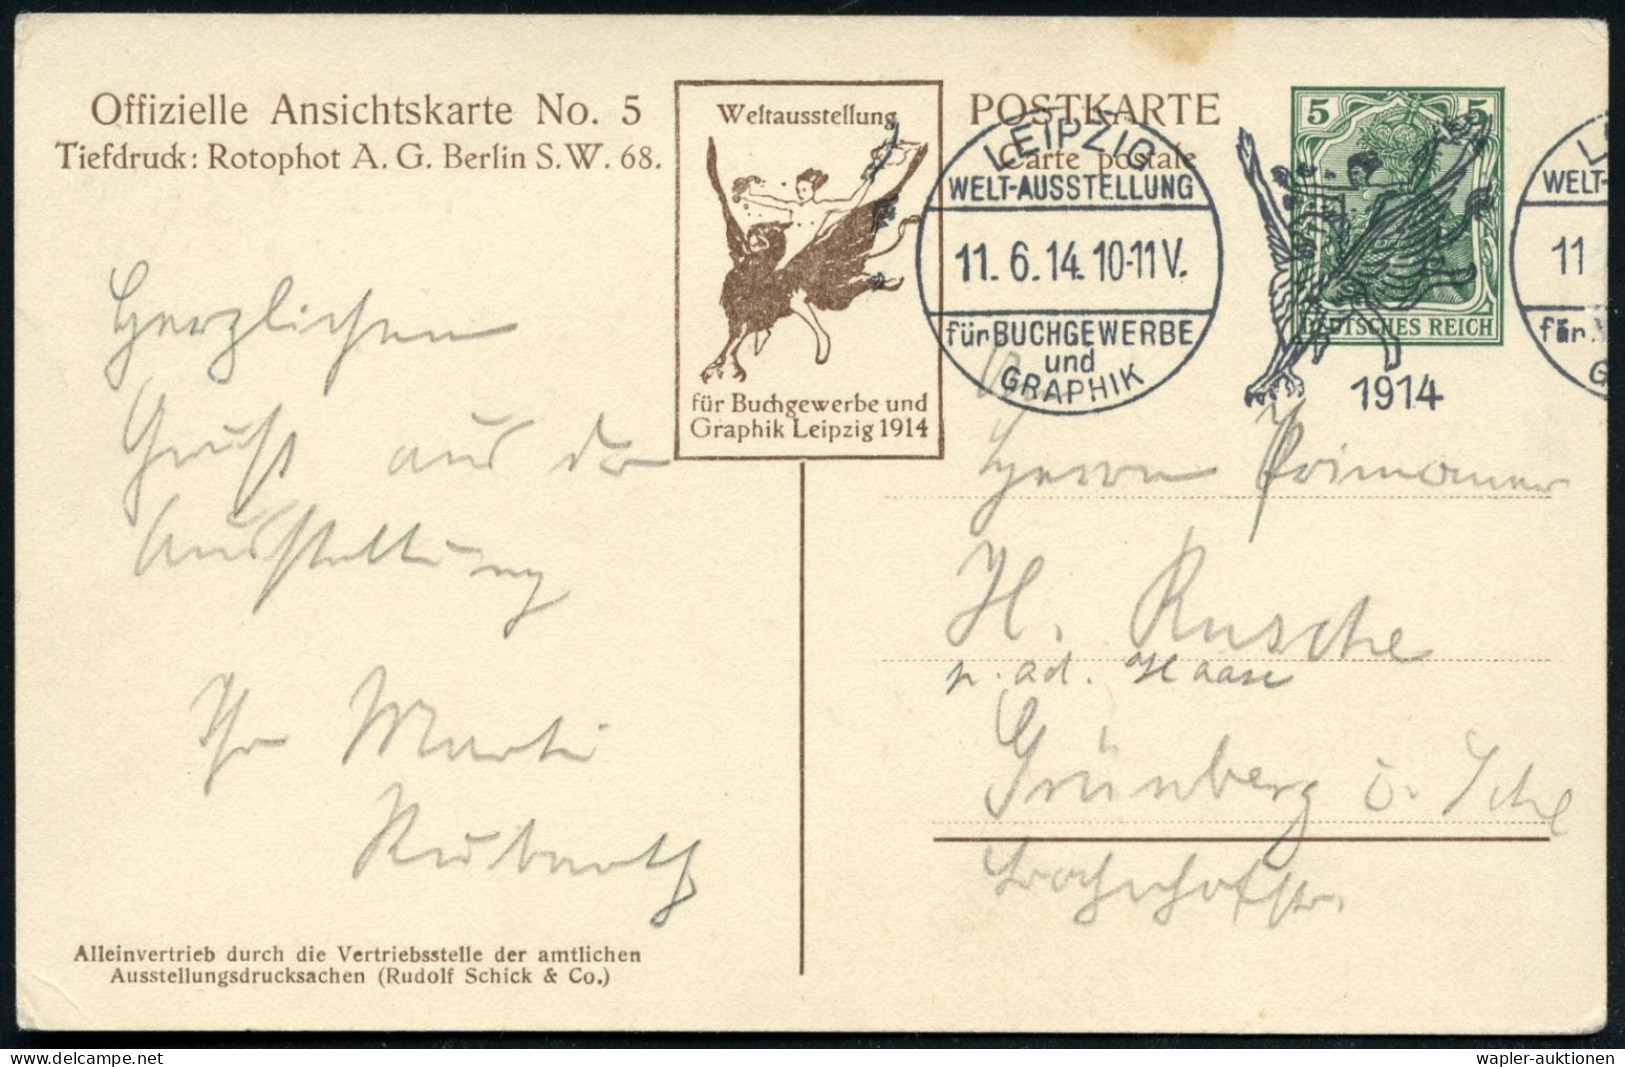 Offizielle Ansichtskarte No. 5
Tiefdruck: Rotophot A. G. Berlin S.W. 68.
Weltausstellung
für Buchgewerbe und
Graphik Leipzig 1914
POSTKARTE
Carte postale
LEIPZIG
WELT-AUSSTELLUNG
11. 6. 14. 10-11 V.
für BUCHGEWERBE
und
GRAPHIK
1914
5 5
DEUTSCHES REICH
WELT-
11
für
Herzlichen
Gruß aus der
Ausstellung
Ihr Martin
Alleinvertrieb durch die Vertriebsstelle der amtlichen
Ausstellungsdrucksachen (Rudolf Schick & Co.)
Herrn Primaner
H. Rusche
p. ad. Haase
Grünberg i. Schl
Bahnhofstr.
delcampe.net
wapler-auktionen